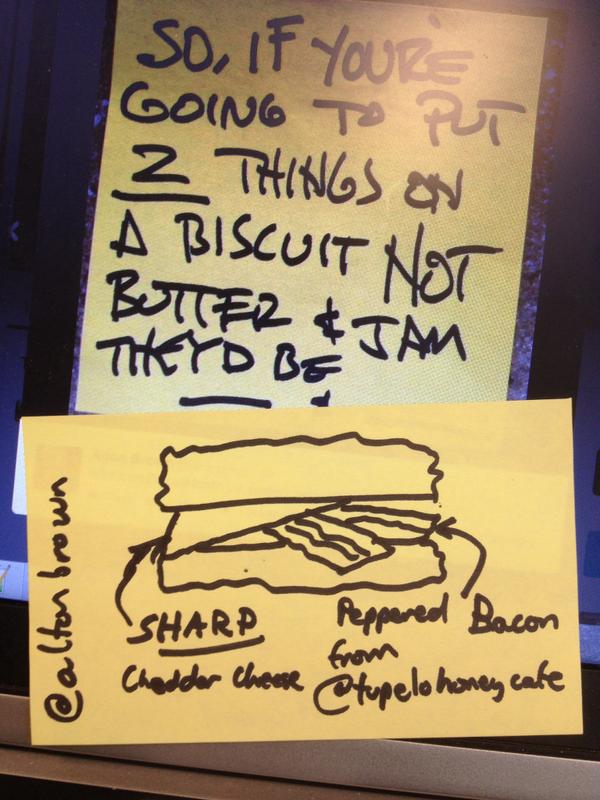 SO, IF YOU'RE
GOING TO PUT
2 THINGS ON
A BISCUIT NOT
BUTTER & JAM
THEY'D BE
@altonbrown
SHARP
Cheddar Cheese
Peppered Bacon
from
@tupelohoneycafe